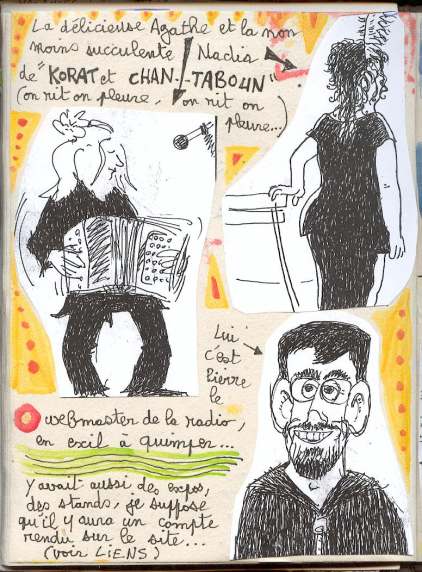 La délicieuse Agathe et la non
moins succulente Nadia
de "KORAT et CHAN-TABOUN"
(on rit on pleure, on rit on
pleure...)
Lui
c'est
Pierre
le
webmaster de la radio,
en exil à Quimper...
Y avait aussi des expos,
des stands, je suppose
qu'il y aura un compte
rendu sur le site...
(voir LIENS)